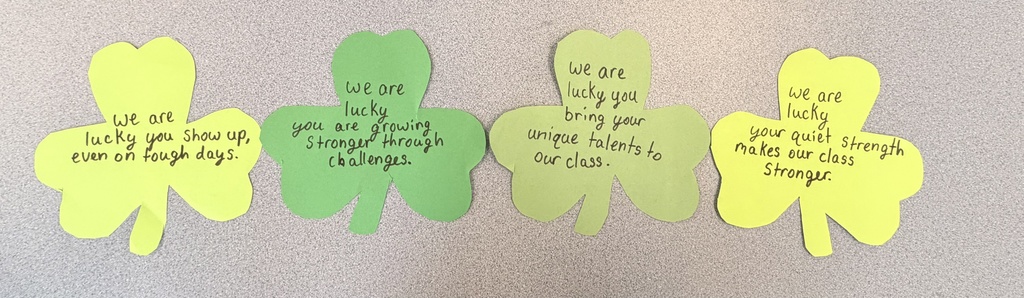 we are
lucky you show up,
even on tough days.
we are
lucky
you are growing
stronger through
challenges.
we are
lucky you
bring your
unique talents to
our class.
we are
lucky
your quiet strength
makes our class
stronger.